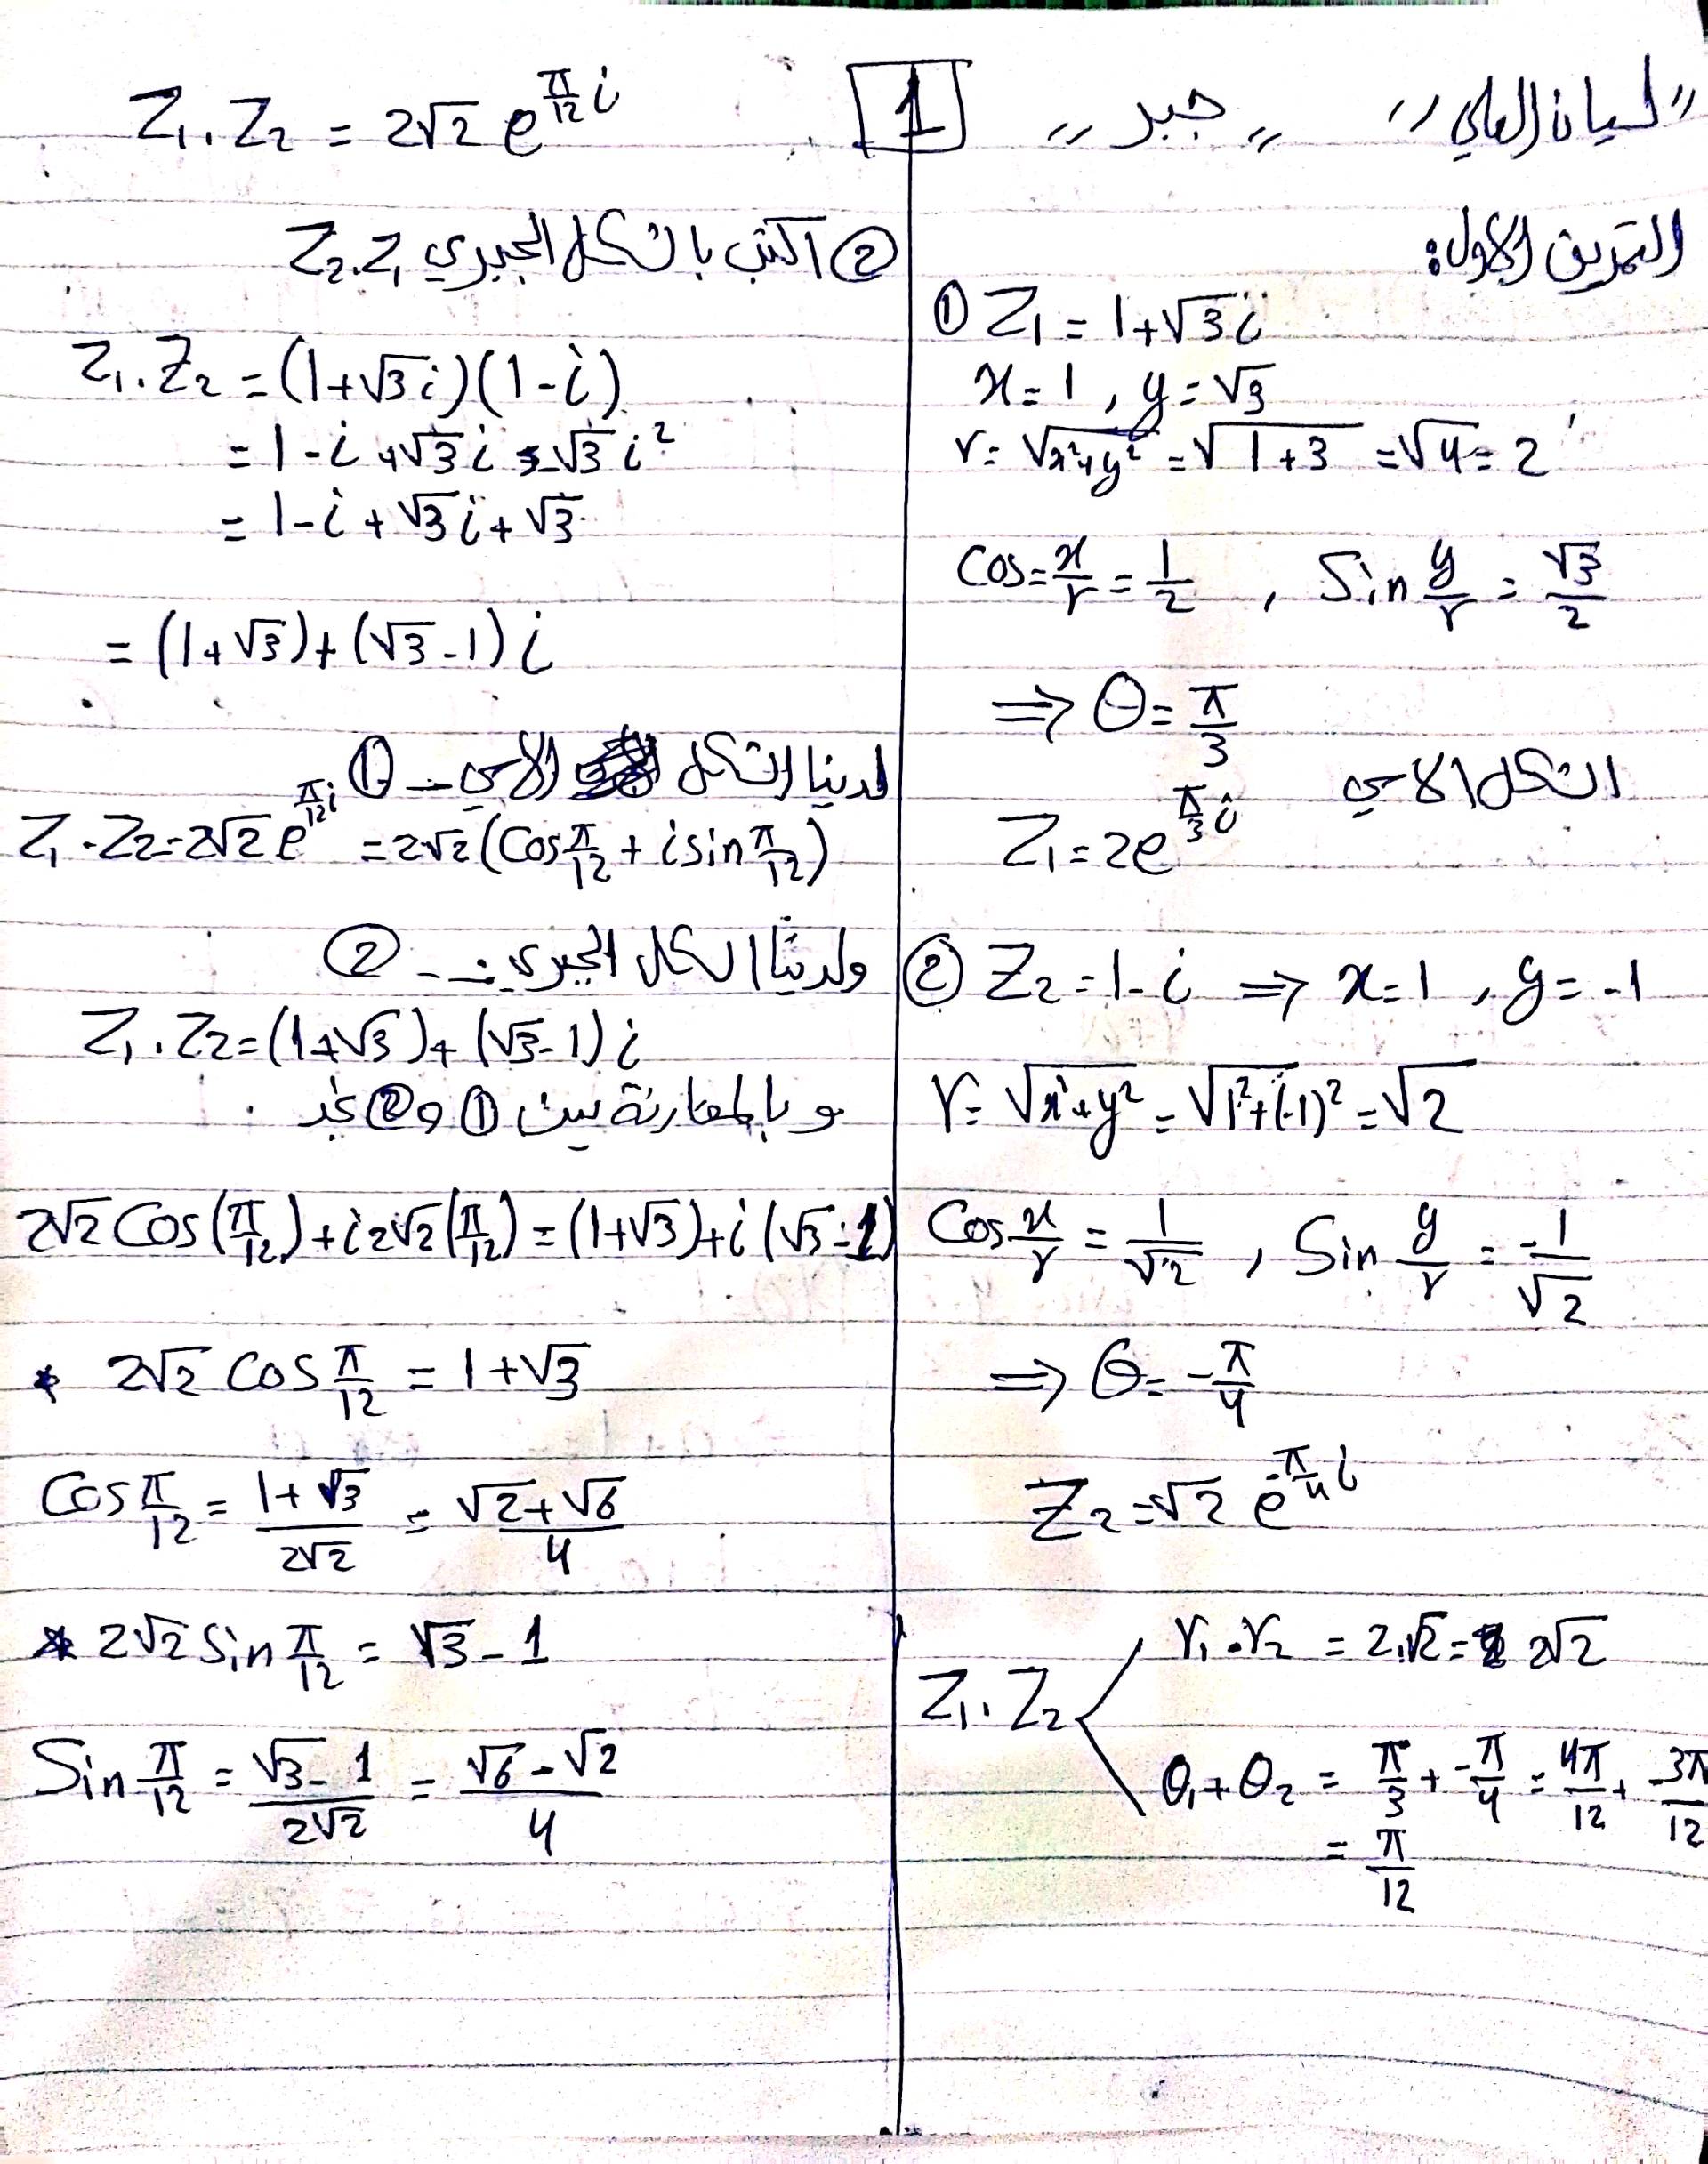 "ليانا العلي" "جبر" 1
التمرين الاول:
① Z₁ = 1+√3 i
x = 1 , y = √3
r = √x²+y² = √1+3 = √4 = 2
Cos = x/r = 1/2 , Sin y/r = √3/2
⇒ θ = π/3
الشكل الاسي
Z₁ = 2e^(π/3 i)
② Z₂ = 1-i ⇒ x = 1 , y = -1
r = √x²+y² = √1²+(-1)² = √2
Cos x/r = 1/√2 , Sin y/r = -1/√2
⇒ θ = -π/4
Z₂ = √2 e^(-π/4 i)
Z₁.Z₂
r₁.r₂ = 2.√2 = 2√2
θ₁+θ₂ = π/3 + -π/4 = 4π/12 + -3π/12
= π/12
Z₁.Z₂ = 2√2 e^(π/12 i)
② اكتب بالشكل الجبري Z₂.Z₁
Z₁.Z₂ = (1+√3 i)(1-i)
= 1-i+√3 i-√3 i²
= 1-i+√3 i+√3
= (1+√3)+(√3-1) i
لدينا الشكل الاسي - ①
Z₁.Z₂ = 2√2 e^(π/12 i) = 2√2 (Cos π/12 + i sin π/12)
ولدينا الشكل الجبري - ②
Z₁.Z₂ = (1+√3)+(√3-1) i
وبالمقارنة بين ① و ② نجد
2√2 Cos(π/12)+i 2√2(π/12) = (1+√3)+i(√3-1)
* 2√2 Cos π/12 = 1+√3
Cos π/12 = 1+√3/2√2 = √2+√6/4
* 2√2 Sin π/12 = √3-1
Sin π/12 = √3-1/2√2 = √6-√2/4